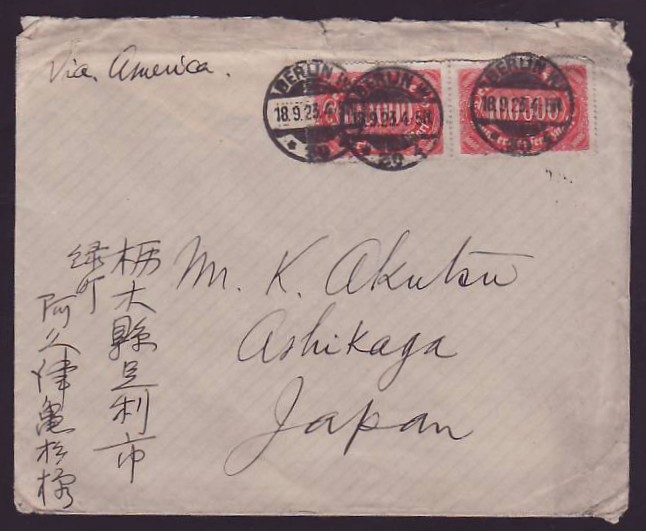 Via. America.
BERLIN W
18.9.23.4-5N
BERLIN W
18.9.23.4-5N
BERLIN W
18.9.23.4-5N
Mr. K. Akutsu
Ashikaga
Japan
栃木縣足利市
緑町
阿久津亀松様